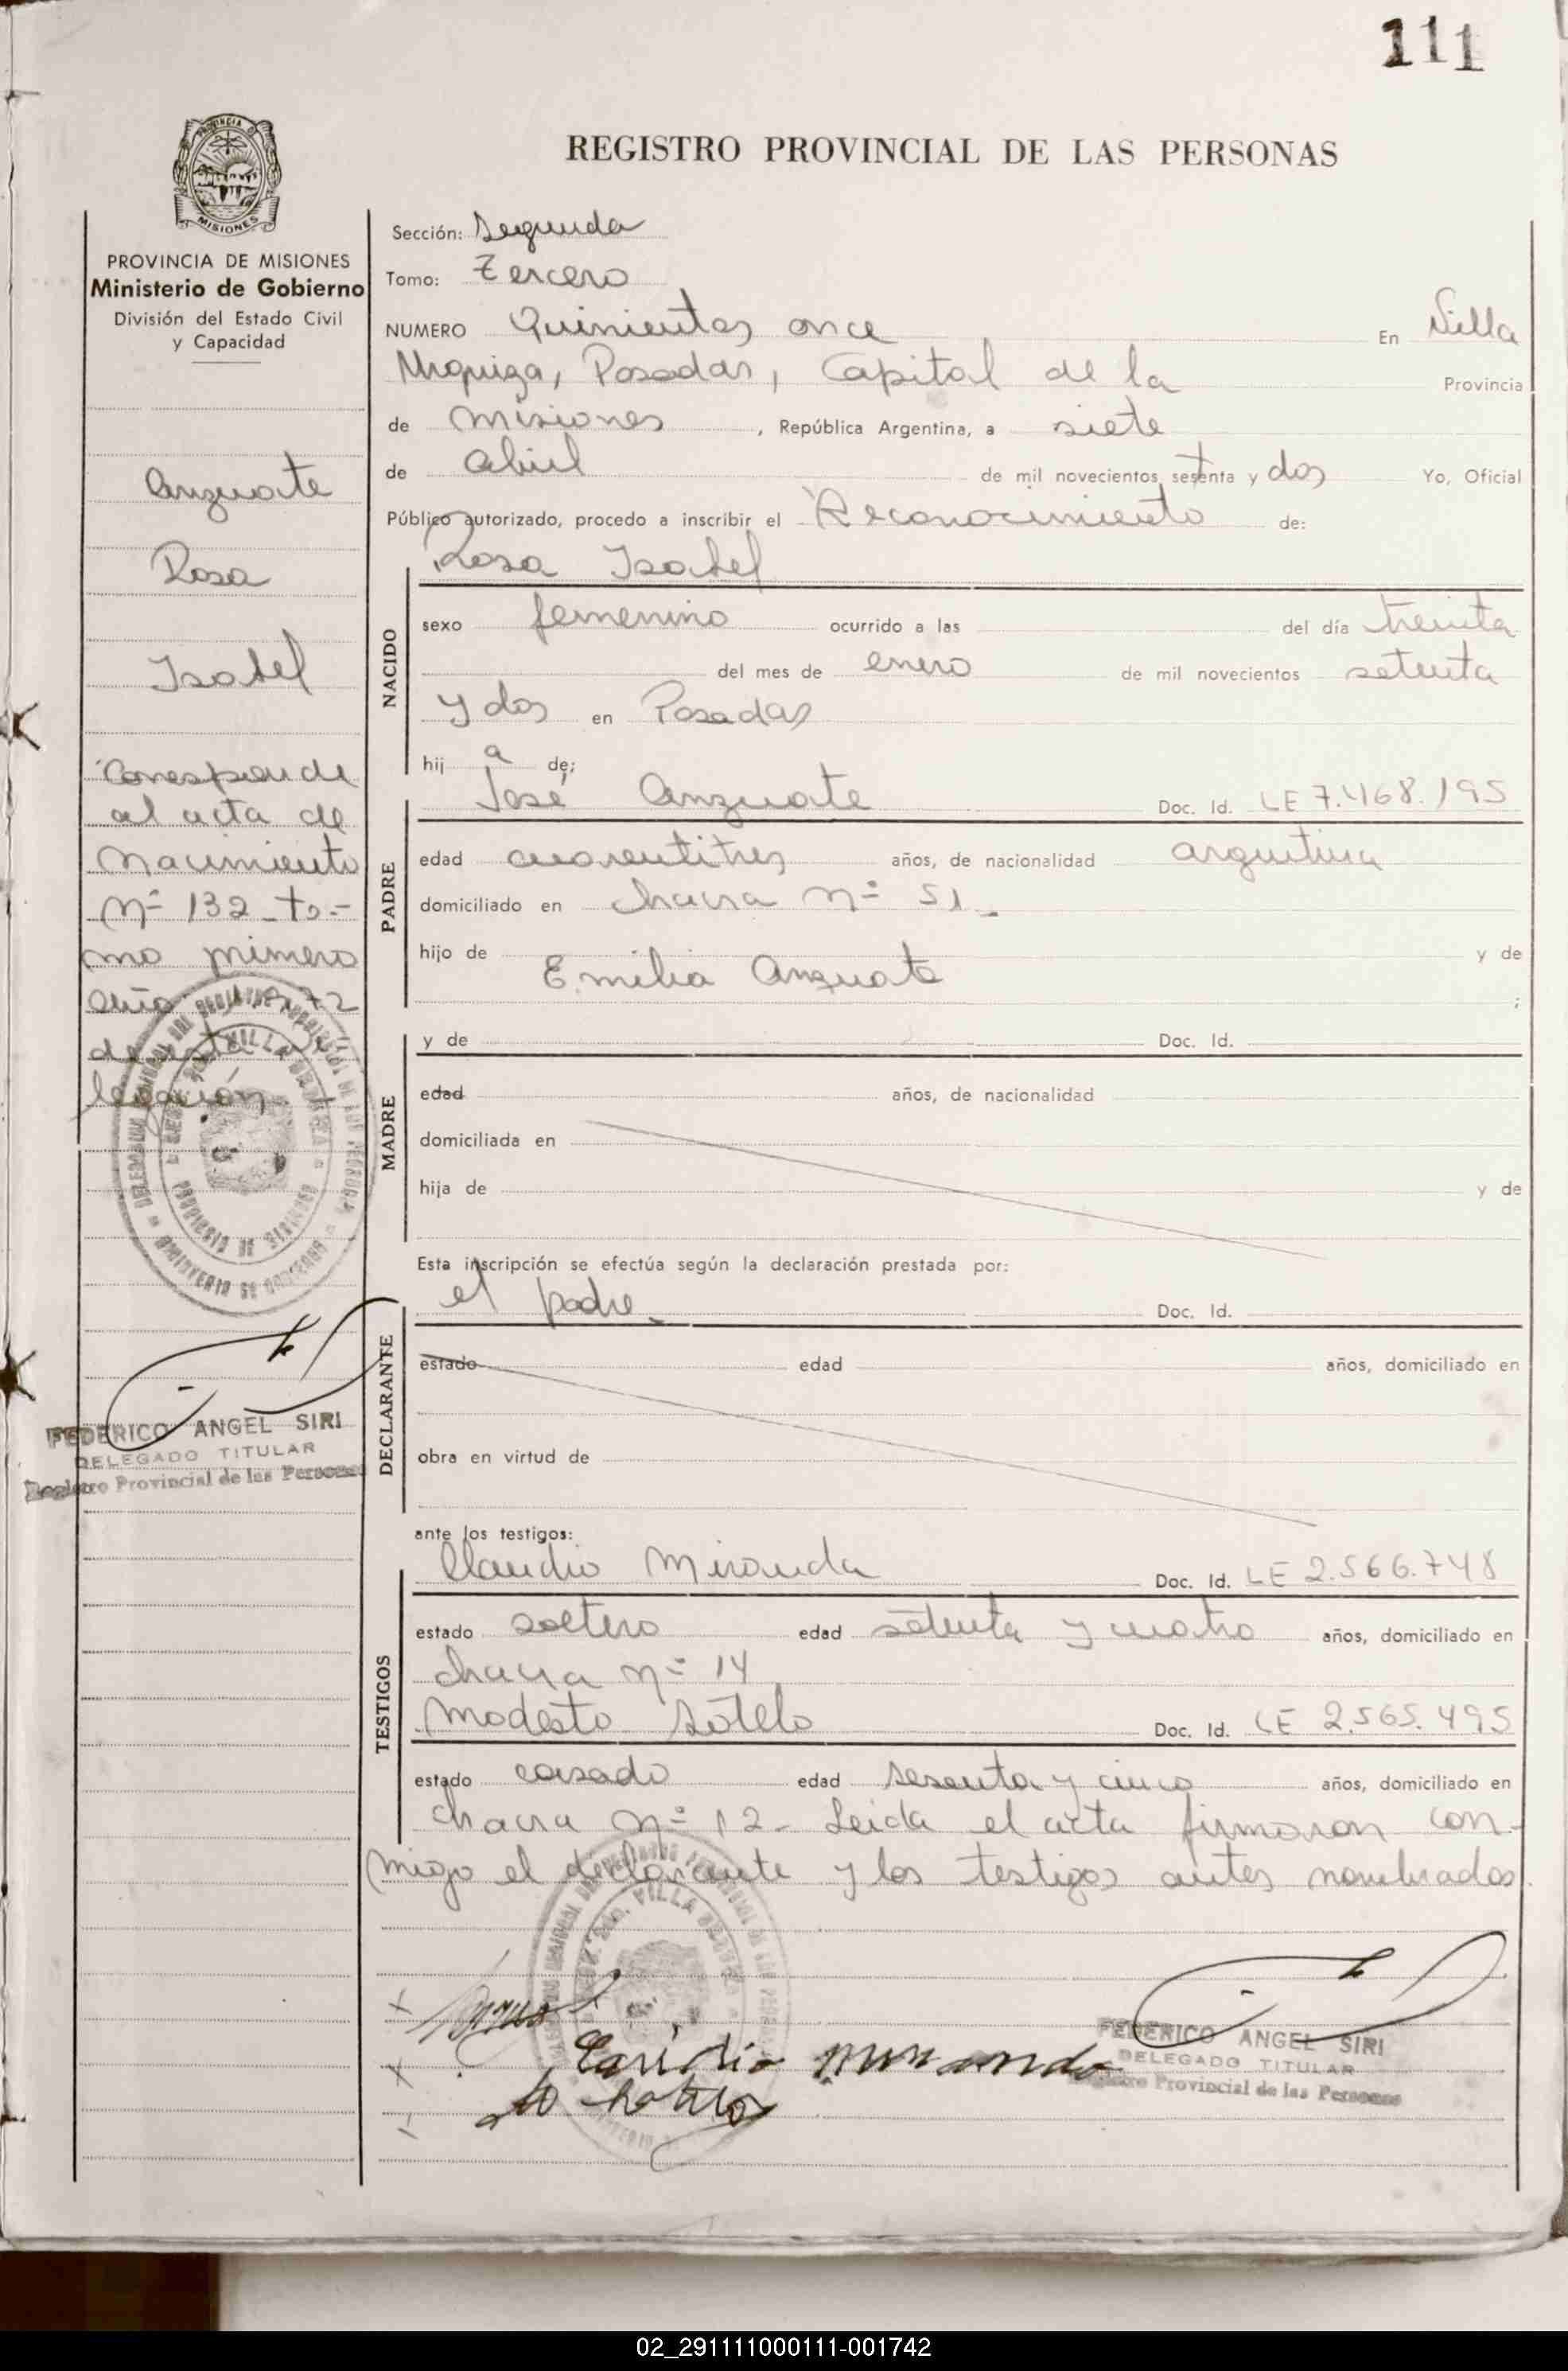 111
PROVINCIA DE
MISIONES
PROVINCIA DE MISIONES
Ministerio de Gobierno
División del Estado Civil
y Capacidad
Anzuate
Rosa
Isabel
Corresponde
al acta de
Nacimiento
Nº 132 - to-
mo primero
año 1972
de esta de
legación
FEDERICO ANGEL SIRI
DELEGADO TITULAR
Registro Provincial de las Personas
REGISTRO PROVINCIAL DE LAS PERSONAS
Sección: Segunda
Tomo: Tercero
NUMERO Quinientos once En Villa
Urquiza, Posadas, Capital de la Provincia
de Misiones, República Argentina, a siete
de abril de mil novecientos setenta y dos Yo, Oficial
Público autorizado, procedo a inscribir el Reconocimiento de:
Rosa Isabel
NACIDO
sexo femenino ocurrido a las del día treinta
del mes de enero de mil novecientos setenta
y dos en Posadas
hij a de;
José Anzuate Doc. Id. LE 7.468.195
PADRE
edad cuarentitres años, de nacionalidad argentina
domiciliado en chacra nº 51 -
hijo de y de
Emilia Anzuate
;
y de Doc. Id.
MADRE
edad años, de nacionalidad
domiciliada en
hija de y de
Esta inscripción se efectúa según la declaración prestada por:
el padre Doc. Id.
DECLARANTE
estado edad años, domiciliado en
obra en virtud de
ante los testigos:
Claudio Miranda Doc. Id. LE 2.566.748
TESTIGOS
estado soltero edad setenta y cuatro años, domiciliado en
chacra nº 14
Modesto Sotelo Doc. Id. LE 2.565.495
estado casado edad sesenta y cinco años, domiciliado en
chacra nº 12 - Leida el acta firmaron con-
migo el declarante y los testigos antes nombrados.
FEDERICO ANGEL SIRI
DELEGADO TITULAR
Registro Provincial de las Personas
02_291111000111-001742